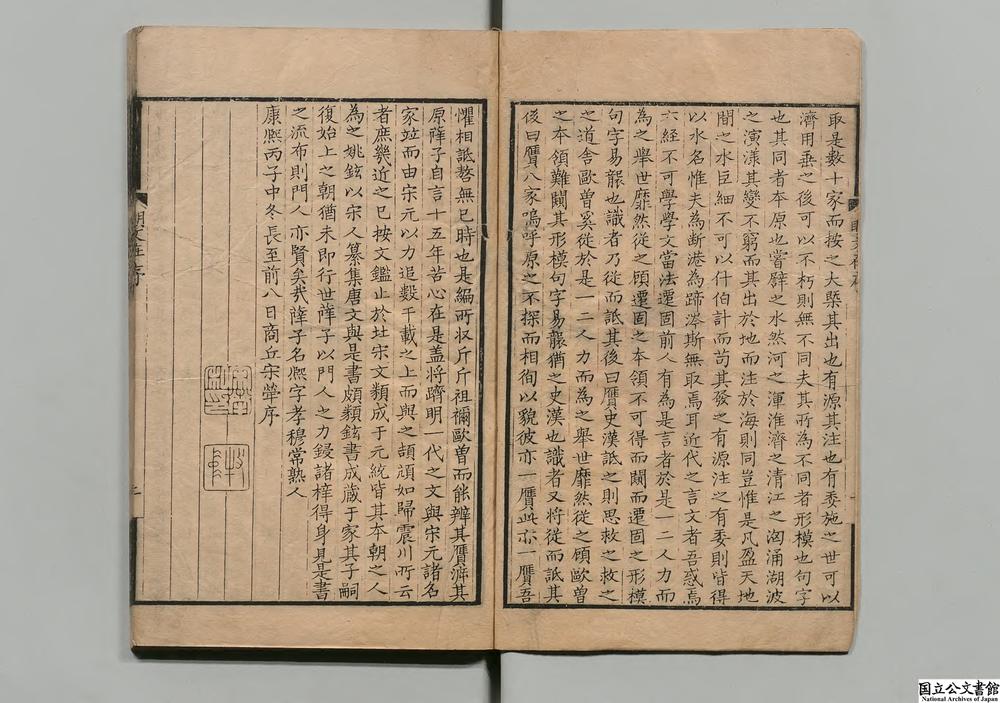 取是數十家而按之大槩其出也有源其注也有委施之世可以
濟用垂之後可以不朽則無不同夫其所為不同者形模也句字
也其同者本原也嘗譬之水然河之渾淮濟之清江之洶涌湖波
之演漾其變不窮而其出於地而注於海則同豈惟是凡盈天地
間之水巨細不可以什伯計而苟其發之有源注之有委則皆得
以水名惟夫為断港為蹄涔斯無取焉耳近代之言文者吾惑焉
六經不可學學文當法遷固前人有為是言者於是一二人力而
為之舉世靡然從之顧遷固之本領不可得而闚而遷固之形模
句字易襲也識者乃從而詆其後曰贋史漢詆之則思救之救之
之道舍歐曽奚從於是一二人力而為之舉世靡然從之顧歐曽
之本領難闚其形模句字易襲猶之史漢也識者又将從而詆其
後曰贋八家嗚呼原之不探而相徇以貌彼亦一贋此亦一贋吾
懼相詆謷無已時也是編所収斤斤祖禰歐曽而能辨其贋泝其
原薛子自言十五年苦心在是盖将躋明一代之文與宋元諸名
家竝而由宋元以力追數千載之上而與之頡頏如歸震川所云
者庶幾近之已按文鑑止於北宋文類成于元統皆其本朝之人
為之姚鉉以宋人纂集唐文與是書頗類鉉書成蔵于家其子嗣
復始上之朝猶未即行世薛子以門人之力鋟諸梓得身見是書
之流布則門人亦賢矣㢤薛子名熙字孝穆常熟人
康熙丙子中冬長至前八日商丘宋犖序
国立公文書館
National Archives of Japan